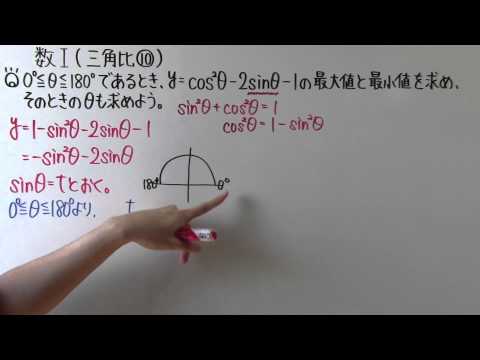 数I(三角比⑩)
0°≦θ≦180°であるとき、y=cos²θ-2sinθ-1の最大値と最小値を求め、
そのときのθも求めよう。
sin²θ+cos²θ=1
cos²θ=1-sin²θ
y=1-sin²θ-2sinθ-1
=-sin²θ-2sinθ
sinθ=tとおく。
180° 0°
0°≦θ≦180°より、 t